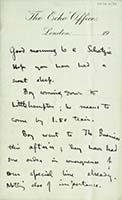 The Echo Offices,
London. 19
Good morning to E
Hope you have had a
sweet sleep.
Boy coming down to
Littlehampton; he means to
come by 1.50 train.
Boy went to The Business
this afternoon; they have had
one order in consequence of
our special line already.
Nothing else of importance.